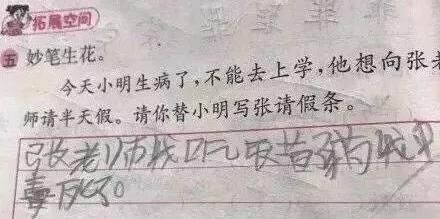 拓展空间
五 妙笔生花。
今天小明生病了,不能去上学,他想向张老
师请半天假。请你替小明写张请假条。
张老师我吃药
毒死了。